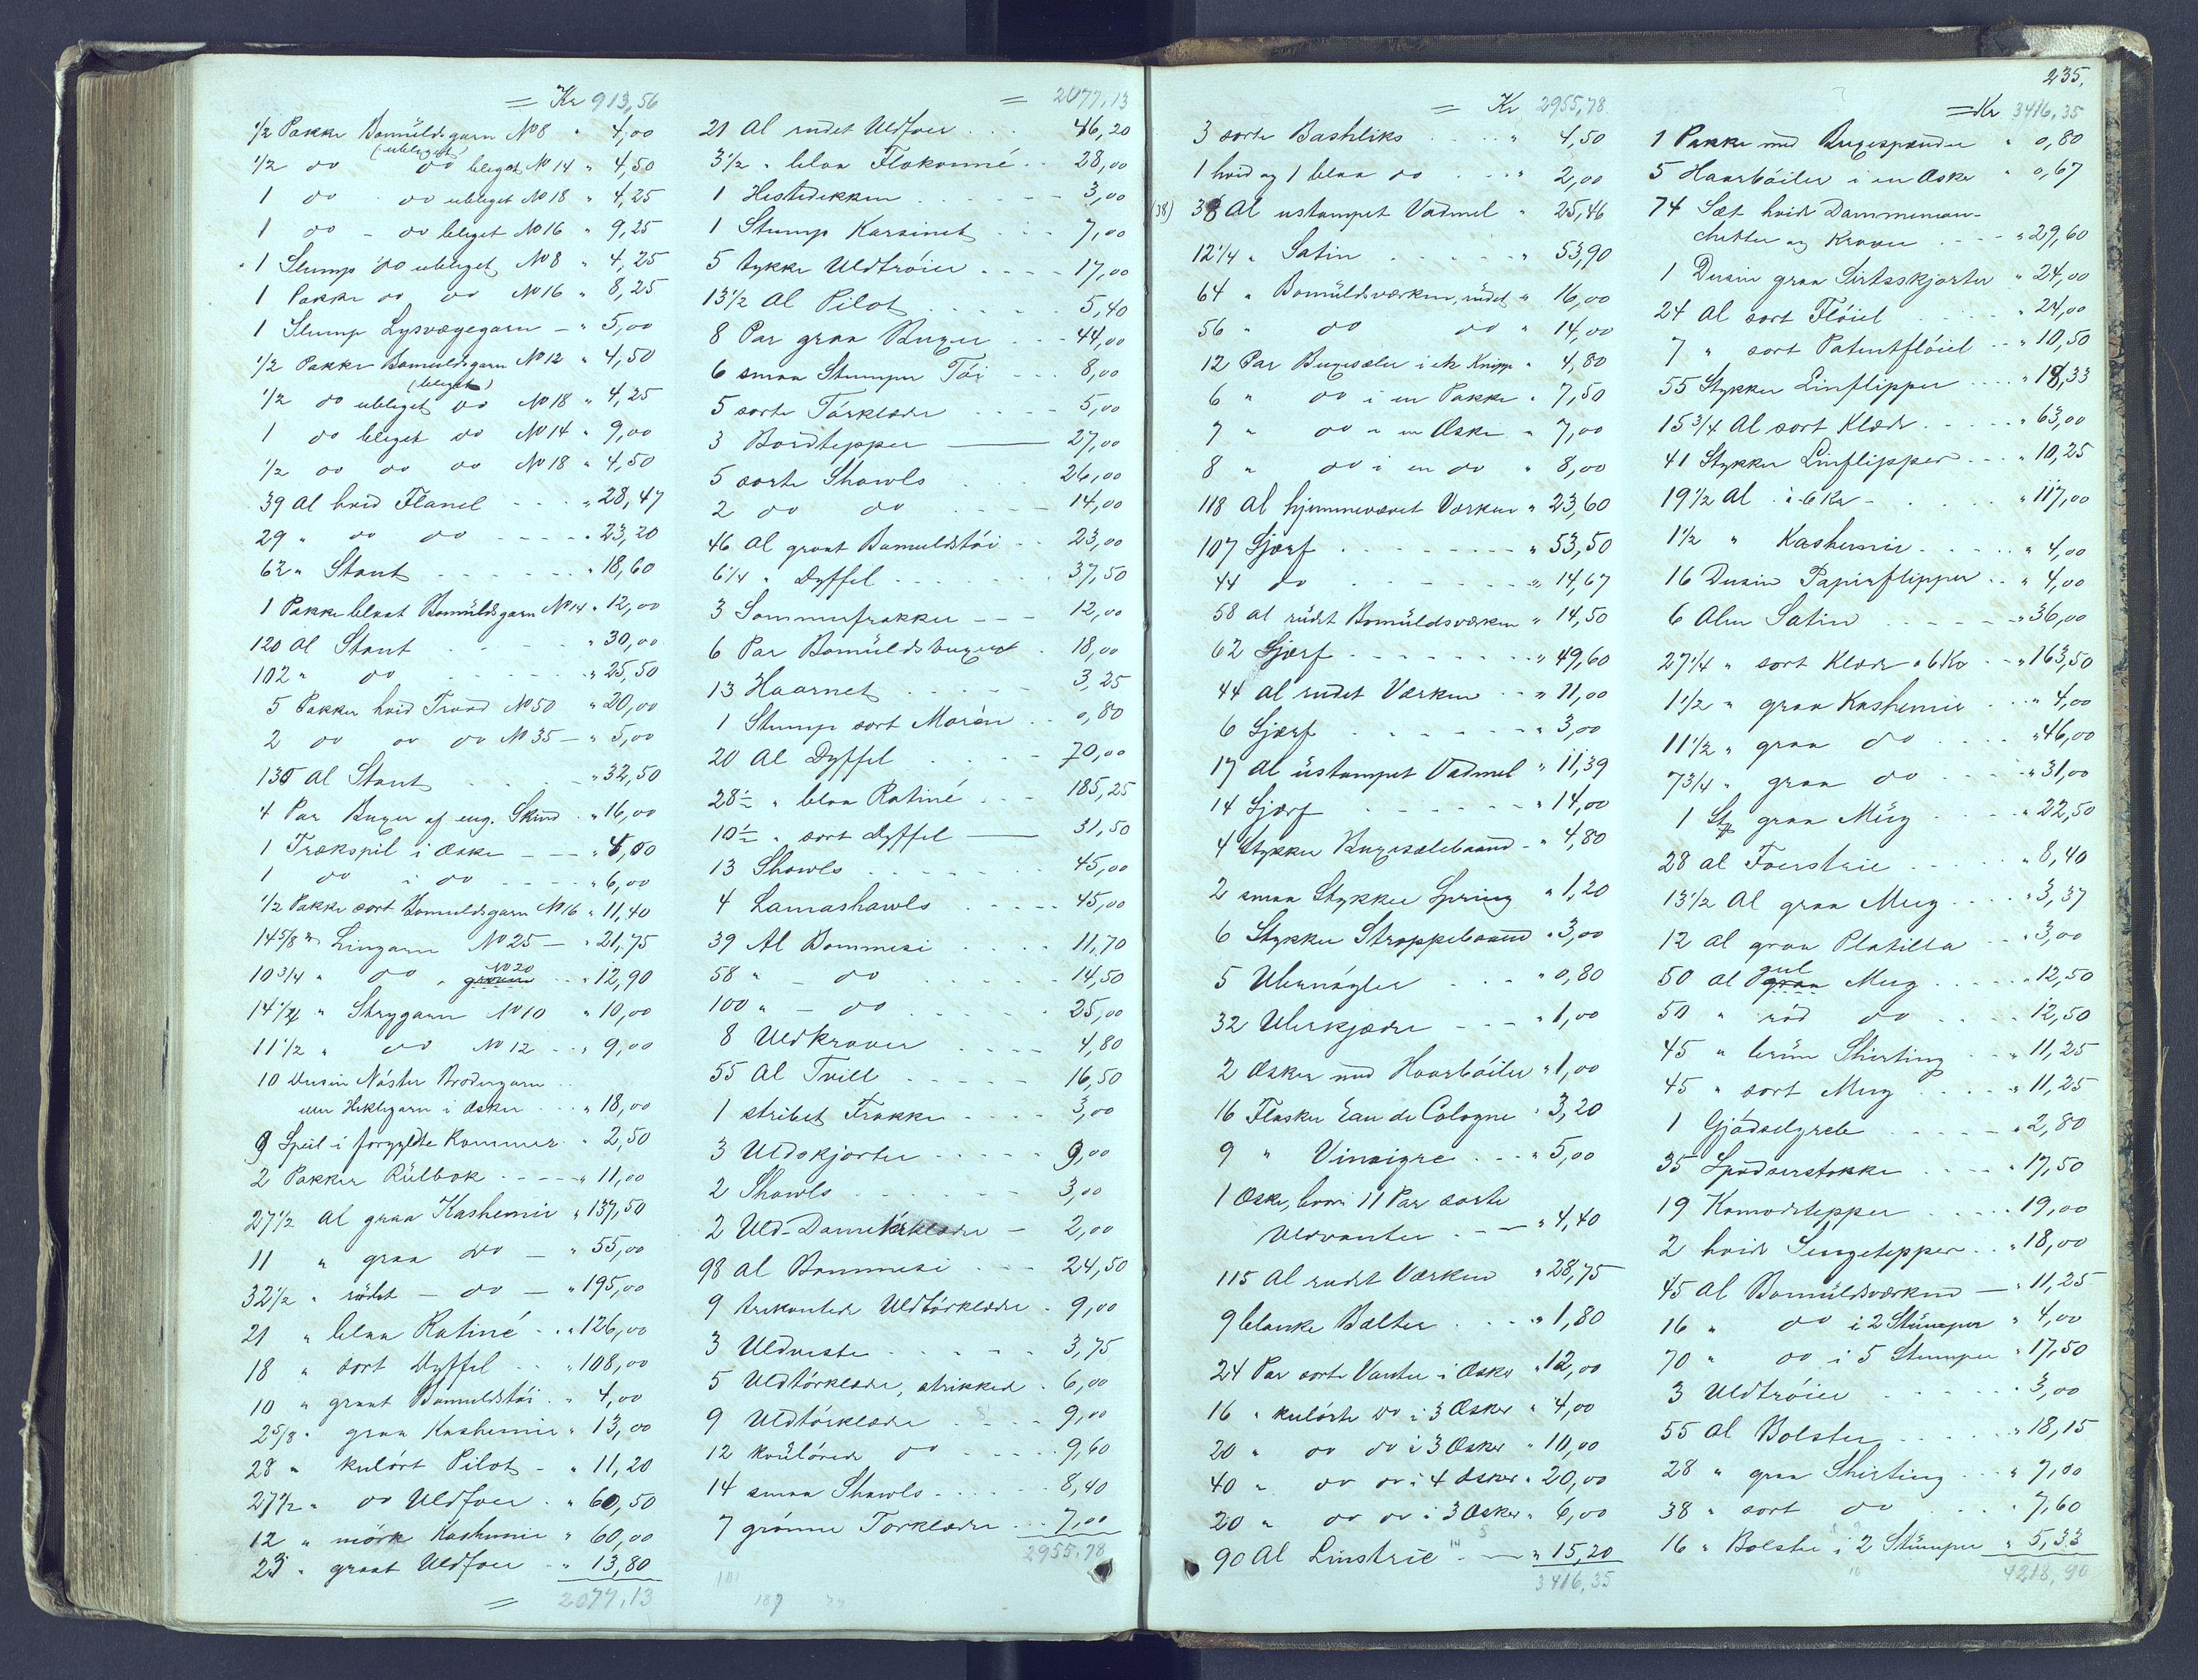 = Kr 913,56
1/2 Pakke Bomüldsgarn No 8 " 4,00
(ubleget)
1/2 do do bleget No 14 " 4,50
1 do do ubleget No 18 " 4,25
1 do - do bleget No 16 " 9,25
1 Slump do ubleget No 8 " 4,25
1 Pakke do do No 16 " 8,25
1 Slump Lysvægegarn - " 5,00
1/2 Pakke Bomuldsgarn No 12 " 4,50
(bleget)
1/2 do ubleget do No 18 " 4,25
1 do bleget do No 14 " 9,00
1/2 do do do No 18 " 4,50
39 Al hvid Flanel - - " 28,47
29 " do do - - - - " 23,20
62 " Stout - - - - - " 18,60
1 Pakke blaat Bomüldsgarn No 14 " 12,00
120 Al Stout - - - - " 30,00
102 " do - - - - " 25,50
5 Pakker hvid Traad No 50 " 20,00
2 do do do No 35 - " 5,00
130 Al Stout - - - " 32,50
4 Par Buxer af eng. Skind " 16,00
1 Trækspil i Æske - - - " 4,00
1 do i do - - - - " 6,00
1/2 Pakke sort Bomuldsgarn No 16 " 11,40
14 5/8 " Lingarn No 25 - " 21,75
No 20
10 3/4 " do " 12,90
14 1/4 " Strygarn No 10 " 10,00
11 1/2 " do No 12 - - " 9,00
10 Dusin Nøster Brodergarn
eller Heklegarn i Æsker - - " 18,00
9 Speil i forgyldte Rammer " 2,50
2 Pakker Rülbok - - - - " 11,00
27 1/2 Al graa Kashemir " 137,50
11 " graa do - " 55,00
32 1/2 " rödt - do - " 195,00
21 " blaa Ratiné - " 126,00
18 " sort Dyffel - - " 108,00
10 " graat Bomuldstöi " 4,00
2 5/8 " graa Kashemir " 13,00
28 " kulört Pilot - " 11,20
27 1/2 " do Uldfoer - " 60,50
12 " mörk Kashemir " 60,00
23 " graat Uldfoer - " 13,80
= 2077,13
= 2077,13
21 Al rudet Uldfoer - - 46,20
3 1/2 " blaa Flokonné - - 28,00
1 Hestedekken - - - - 3,00
1 Stump Karsinet - - - 7,00
5 tykke Uldtröier - - - - 17,00
13 1/2 Al Pilot - - - - 5,40
8 Par graa Buxer - - - 44,00
6 smaa Stumper Töi - - - 8,00
5 sorte Törklæder - - - - 5,00
3 Bordtepper - 27,00
5 sorte Shawls - - - 26,00
2 do do - - - - 14,00
46 Al graat Bomuldstöi - - 23,00
6 1/4 " Dyffel - - - - - 37,50
3 Sommerfrakker - - - 12,00
6 Par Bomüldsbuxer - 18,00
13 Haarnet - - - - - 3,25
1 Stump sort Moren - - 0,80
20 Al Dyffel - - - - - 70,00
28 1/2 " blaa Ratiné - - 185,25
10 1/2 " sort Dyffel - 31,50
13 Shawls - - - - - 45,00
4 Lamashawls - - - - 45,00
39 Al Bommesi - - - 11,70
58 " - do - - - - 14,50
100 " - do - - - - 25,00
8 Uldkraver - - - - 4,80
55 Al Tvill - - - - - 16,50
1 stribet Frakke - - - - 3,00
3 Uldskjorter - - - - 9,00
2 Shawls - - - - - - 3,00
2 Uld-Dametörklæder - 2,00
98 Al Bommesi - - - 24,50
9 trekantede Uldtörklæder - 9,00
3 Uldveste - - - - - 3,75
5 Uldtörklæder, strikkede - 6,00
9 Uldtörklæder - - - 9,00
12 koülörede do - - - - 9,60
14 smaa Shawls - - - - 8,40
7 grönne Torklæder - - - 7,00
2955,78
= Kr 2955,78
3 sorte Bashliks - - - - " 4,50
1 hvid og 1 blaa do - - - " 2,00
(38) 38 Al ustampet Vadmel " 25,46
12 1/4 " Satin - - - - - " 53,90
64 " Bomüldsværken, rüdet " 16,00
56 " do do " 14,00
12 Par Buxeseler i et Knippe " 4,80
6 " do i en Pakke " 7,50
7 " do i en Æske " 7,00
8 " do i en do " 8,00
118 Al hjemmevævet Værken " 23,60
107 Sjærf - - - - - - - " 53,50
44 do - - - - - - " 14,67
58 al rüdet Bomüldsværken " 14,50
62 Sjærf - - - - - - " 49,60
44 al rudet Værken - - " 11,00
6 Sjærf - - - - - - " 3,00
17 Al üstampet Vadmel " 11,39
14 Sjærf - - - - - - " 14,00
4 Stykker Buxeselebaand - " 4,80
2 smaa Stykker Spring " 1,20
6 Stykker Stroppebaand " 3,00
5 Uhrnögler - - - " 0,80
32 Uhrkjæder - - - " 1,00
2 Æsker med Haarböiler " 1,00
16 Flasker Eau de Cologne " 3,20
9 " Vinaigre - - - " 5,00
1 Æske, hvori 11 Par sorte
Uldvanter - - - " 4,40
115 Al rudet Værken " 28,75
9 blanke Bælter - - - " 1,80
24 Par sorte Vanter i Æsker " 12,00
16 " kulörte do i 3 Æsker " 4,00
20 " do do i 3 Æsker " 10,00
40 " do do i 4 Æsker " 20,00
20 " do do i 3 Æsker " 6,00
90 Al Linstrie - - " 15,20
3416,35
235.
= Kr 3416,35
1 Pakke med Buxespænder " 0,80
5 Haarböiler i en Æske " 0,67
74 Sæt hvide Dammeman-
chetter og Kraver - - - - " 29,60
1 Dusin graa Sirtsskjorter " 24,00
24 Al sort Flöiel - - - " 24,00
7 " sort Patentflöiel - - " 10,50
55 Stykker Linflipper - - - - " 18,33
15 3/4 Al sort Klæde - - - - - " 63,00
41 Stykker Linflipper - - - " 10,25
19 1/2 Al " à 6 Kr - - - - " 117,00
1 1/2 " Kashemir - - - - - " 4,00
16 Dusin Papirflipper - - " 4,00
6 Alen Satin - - - - - " 36,00
27 1/4 " sort Klæde à 6 Kr - - " 163,50
1 1/2 " graa Kashemir - - - " 4,00
11 1/2 " graa do - - - - " 46,00
7 3/4 " graa do - - - - " 31,00
1 Stk graa Müg - - - - " 22,50
28 al Foerstrie - - - - " 8,40
13 1/2 Al graa Mug - - - - " 3,37
12 Al graa Platilla - - - " 3,00
gul
50 Al graa Mug - - - - - " 12,50
50 " röd do - - - - 12,50
45 " brün Shirting - - - " 11,25
45 " sort Mug - - - - " 11,25
1 Gjödselgreb - - - - - " 2,80
35 Spadserstokke - - - - " 17,50
19 Komodetepper - - - - - 19,00
2 hvide Sengetepper - - - " 18,00
45 Al Bomüldsværken - " 11,25
16 " do i 2 Stümper " 4,00
70 " do i 5 Stumper " 17,50
3 Uldtröier - - - - - - " 3,00
55 Al Bolster - - - - - " 18,15
28 " graa Shirting - - - " 7,00
38 " sort do - - - " 7,60
16 " Bolster i 2 Stümper " 5,33
4218,90